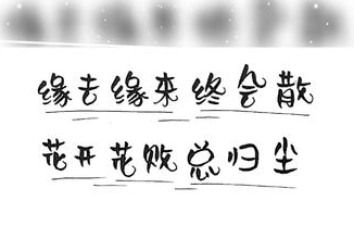 缘去缘来终会散
花开花败总归尘